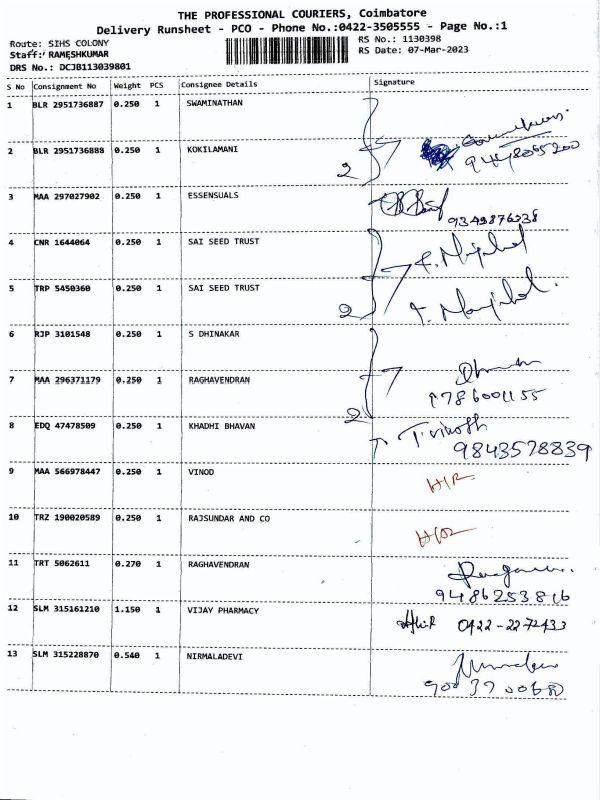 THE PROFESSIONAL COURIERS, Coimbatore
Delivery Runsheet - PCO - Phone No.:0422-3505555 - Page No.:1
Route: SIHS COLONY
RS No.: 1130398
Staff: RAMESHKUMAR
RS Date: 07-Mar-2023
DRS No.: DCJB113039801
S No Consignment No Weight PCS Consignee Details Signature
1 BLR 2951736887 0.250 1 SWAMINATHAN
2 BLR 2951736888 0.250 1 KOKILAMANI 2
3 MAA 297027902 0.250 1 ESSENSUALS
4 CNR 1644064 0.250 1 SAI SEED TRUST
5 TRP 5450360 0.250 1 SAI SEED TRUST 2
6 RJP 3101548 0.250 1 S DHINAKAR
7 MAA 296371179 0.250 1 RAGHAVENDRAN 2
8 EDQ 47478509 0.250 1 KHADHI BHAVAN T. vinoth
9843578839
9 MAA 566978447 0.250 1 VINOD
10 TRZ 190020589 0.250 1 RAJSUNDAR AND CO
11 TRT 5062611 0.270 1 RAGHAVENDRAN
9486253816
12 SLM 315161210 1.150 1 VIJAY PHARMACY 0422-2272433
13 SLM 315228870 0.540 1 NIRMALADEVI